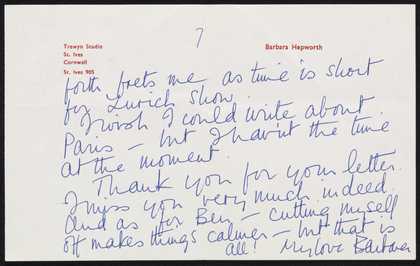 7
Trewyn Studio
St. Ives
Cornwall
St. Ives 905
Barbara Hepworth
forth frets me as time is short
for Zurich Show.
I wish I could write about
Paris – but I havint the time
at the moment.
Thank you for your letter.
I miss you very much indeed.
And as for Ben – cutting myself
off makes things calmer – but that is
all! My love Barbara